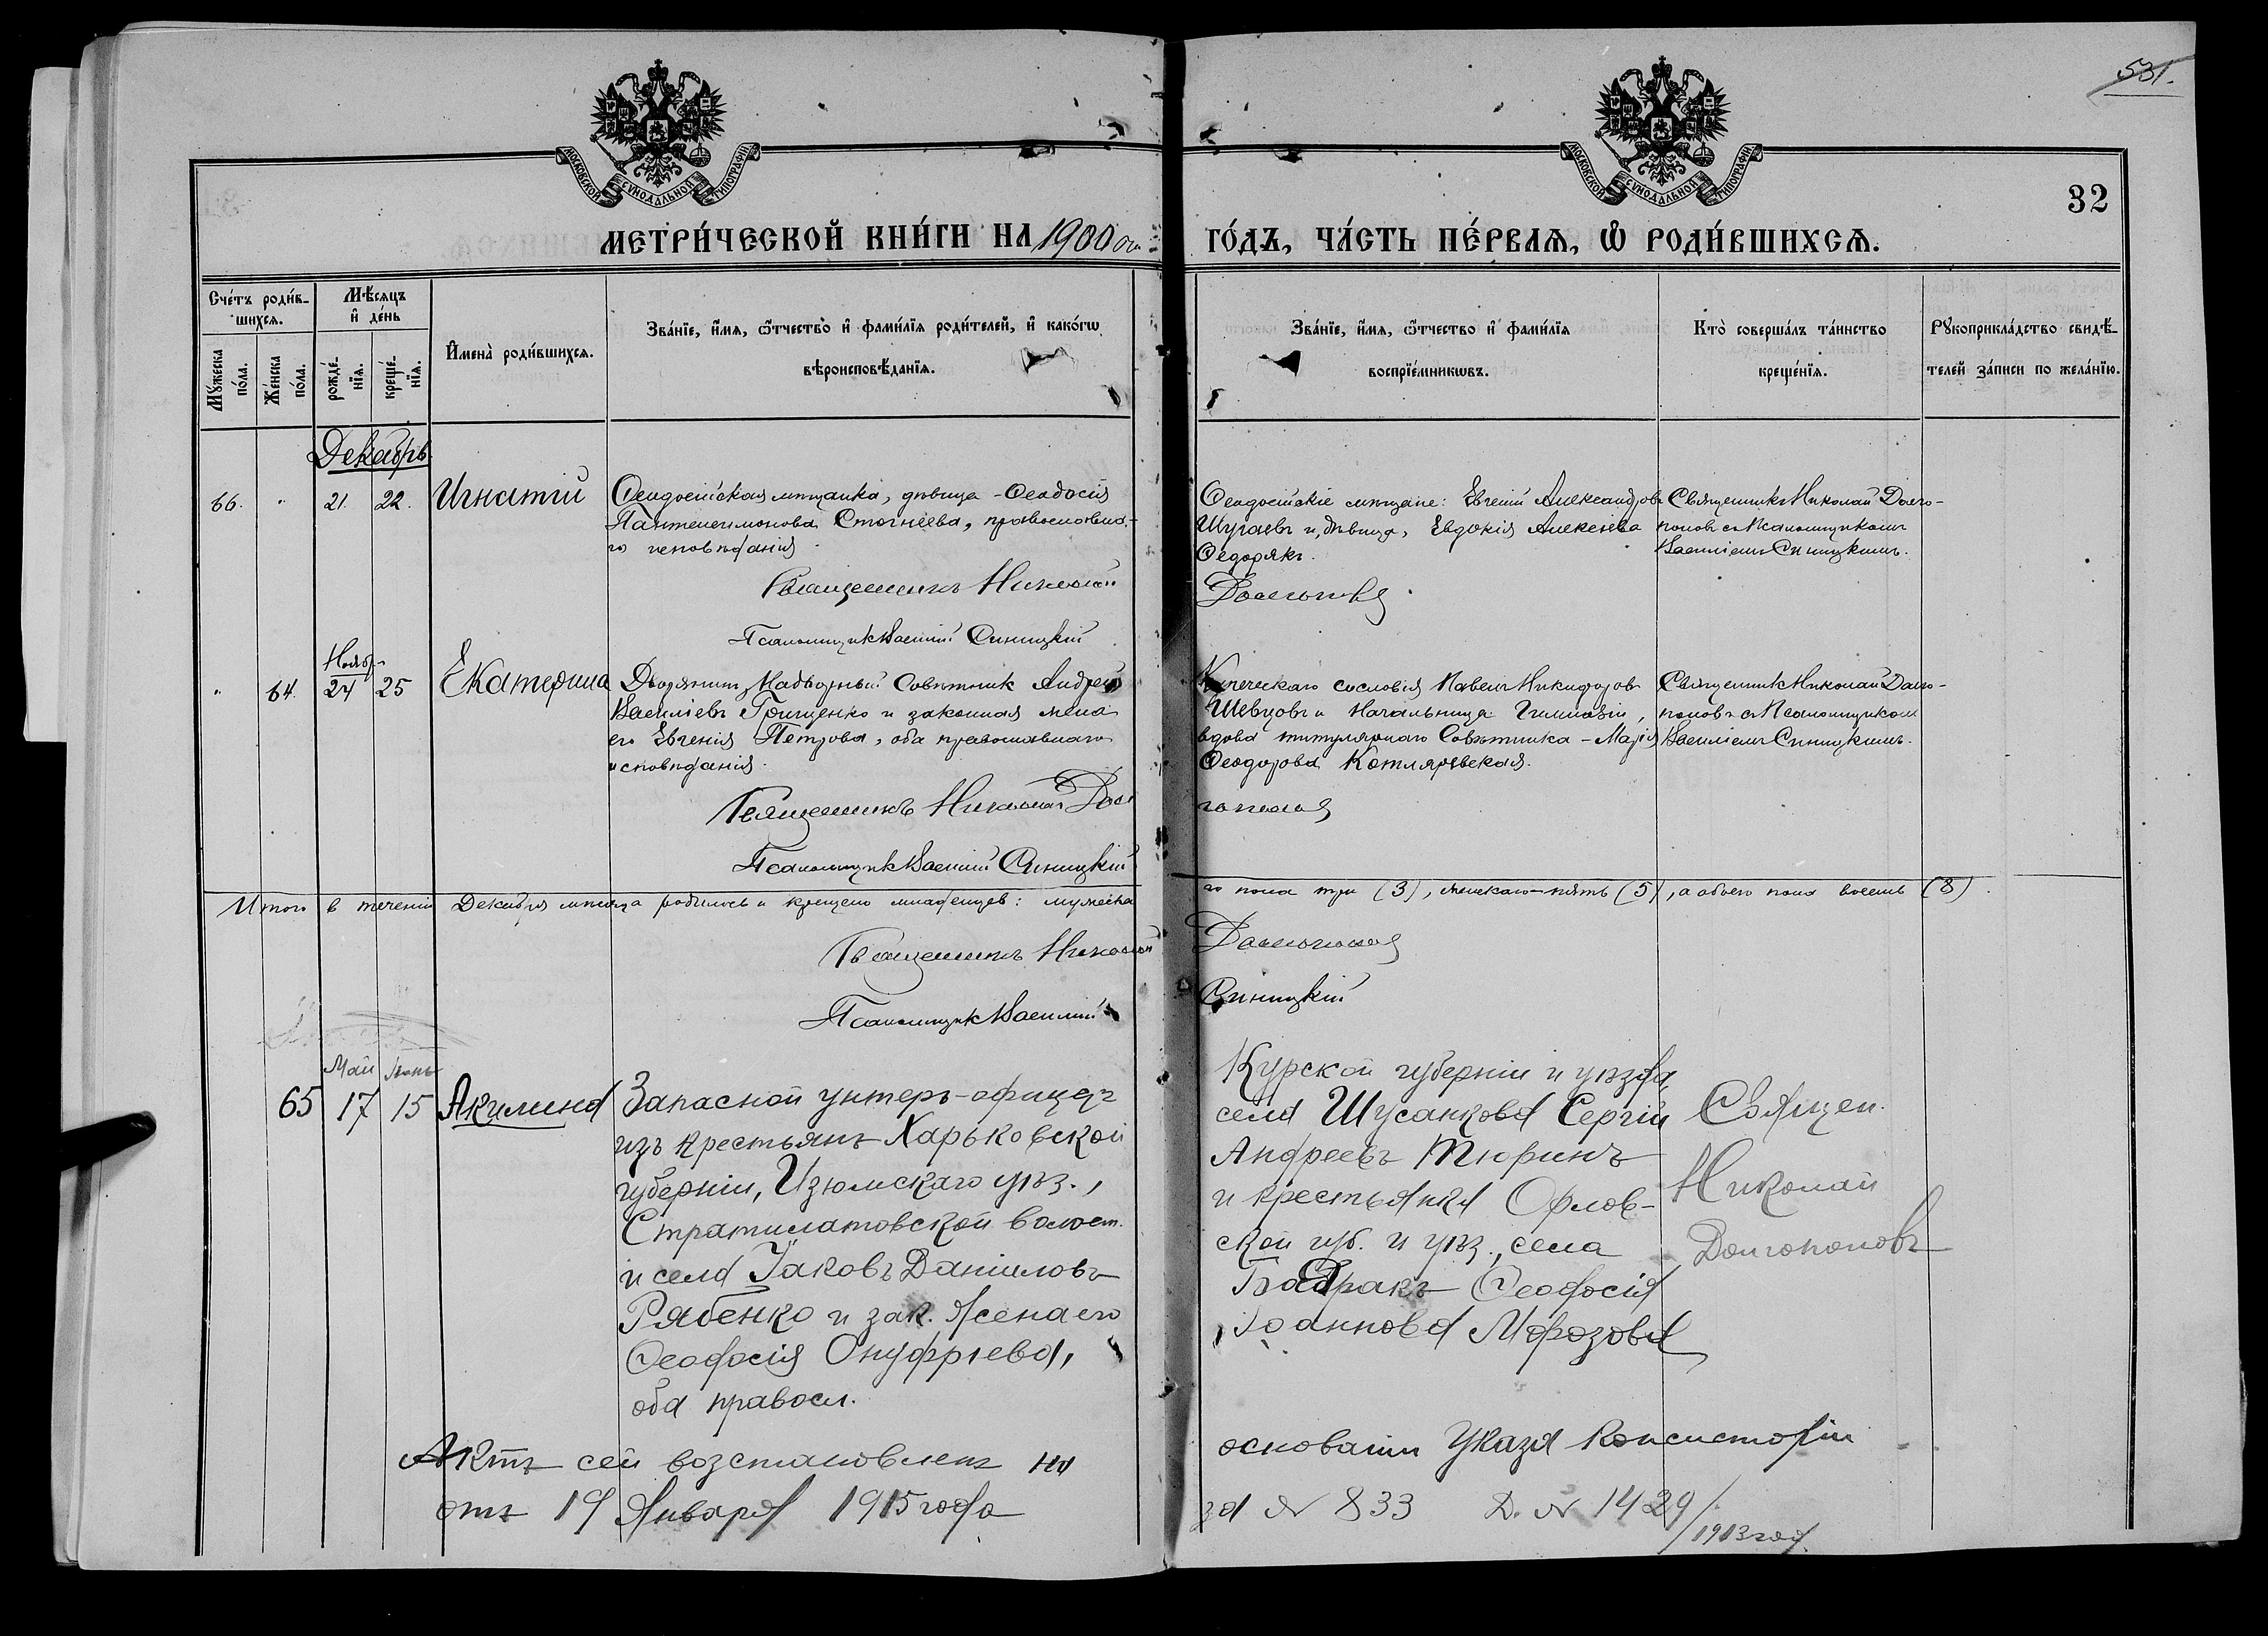 531.
МОСКОВСКОЙ СѴНОДАЛЬНОЙ ТИПОГРАФІИ
МОСКОВСКОЙ СѴНОДАЛЬНОЙ ТИПОГРАФІИ
32
МЕТРИ́ЧЕСКОЙ КНИ́ГИ НА 1900 ый
ГО́ДЪ, ЧА́СТЬ ПЕ́РВАѦ, Ѽ РОДИ́ВШИХСѦ.
Сче́тъ роди́в-
шихсѧ.
Мꙋ́жеска по́ла.
Же́нска по́ла.
Мѣ́сѧцъ
и҆ де́нь
рожде́-
нїѧ.
креще́-
нїѧ.
И҆мена̀ роди́вшихсѧ.
Зва́нїе, и҆́мѧ, ѻ҆́тчество и҆ фами́лїѧ роди́телей, и҆ како́гѡ
вѣроисповѣ́данїѧ.
Зва́нїе, и҆́мѧ, ѻ҆́тчество и҆ фами́лїѧ
воспрїе́мникѡвъ.
Кто̀ соверша́лъ та́инство
креще́нїѧ.
Рꙋкоприкла́дство свидѣ́-
телей за́писи по жела́нїю.
Декабрь
66. " 21. 22. Игнатій
Ѳеодосійская мѣщанка, дѣвица - Ѳеодосія
Пантелеимонова Стогнеева, православна-
го исповѣданія.
Священникъ Николай
Псаломщикъ Василій Синицкій
Ѳеодосійскіе мѣщане: Евгеній Александровъ
Шугаевъ и, дѣвица, Евдокія Алексѣева
Ѳедорякъ.
Священникъ Николай Долго-
повъ съ Псаломщикомъ
Василіемъ Синицкимъ.
Ноябр.
" 64. 24 25 Екатерина
Дворянинъ, Надворный Совѣтникъ Андрей
Васильевъ Грищенко и законная жена
его Евгенія Петрова, оба православнаго
исповѣданія.
Священникъ Николай Дол
гополовъ
Псаломщикъ Василій Синицкій
Купеческаго сословія Павелъ Никифоровъ
Шевцовъ и Начальница Гимназіи,
вдова титулярнаго Совѣтника - Марія
Ѳеодорова Котляревская.
Священникъ Николай Долго-
поповъ съ Псаломщикомъ
Василіемъ Синицкимъ.
Итого въ теченіи Декабря мѣсяца родилось и крещено младенцевъ: мужеска
го пола три (3), женскаго - пять (5), а обоего пола восемь (8).
Священникъ Николай
Псаломщикъ Василій
Синицкій
Май Іюнь
65 17 15 Акилина
Запасной унтеръ-офицеръ
изъ крестьянъ Харьковской
губерніи, Изюмскаго уѣз.,
Стратилатовской волост.
и села Іаковъ Даніиловъ
Рябенко и зак. жена его
Ѳеодосія Онуфріева,
оба правосл.
Курской губерніи и уѣзда,
села Шусанкова Сергій
Андреевъ Тюринъ
и крестьянка Орлов-
ской губ. и уѣз., села
Ѳеодосія
Іоаннова Морозова
Священ.
Николай
Долгополовъ
Актъ сей возстановленъ на
основаніи Указа Консисторіи
отъ 19 Января 1915 года
за № 833 Д. № 1429/1913 год.